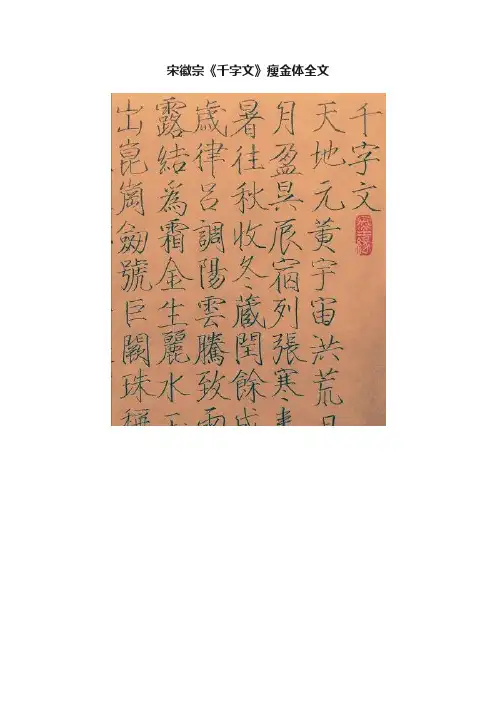 宋徽宗《千字文》瘦金体全文
千字文
天地元黃宇宙洪荒日
月盈昃辰宿列張寒來
暑往秋收冬蔵閏餘成
歲律呂調陽雲騰致雨
露結為霜金生麗水玉
出崑崗劔號巨闕珠稱